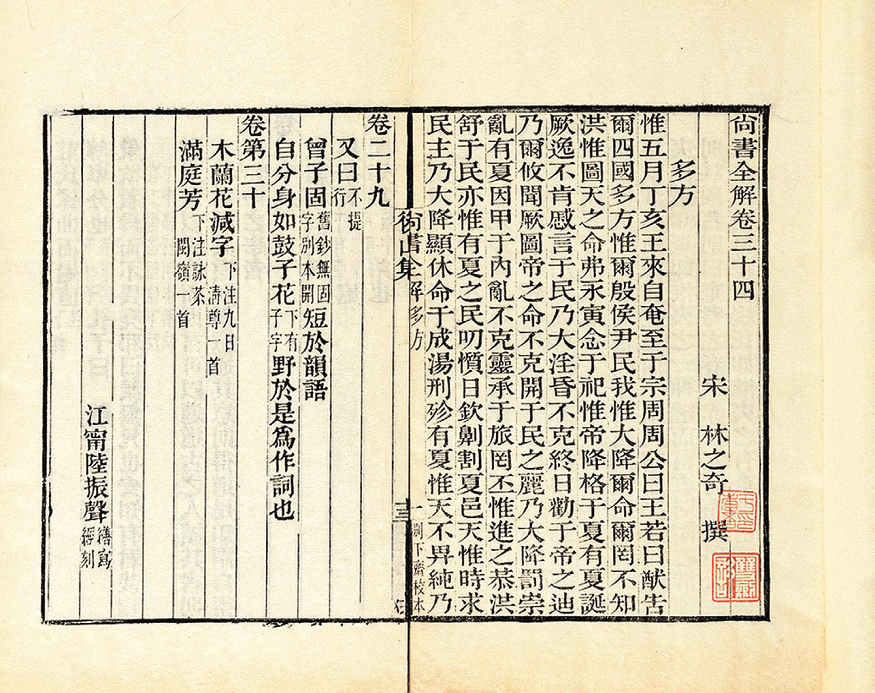 尚書全解卷三十四
宋 林之奇 撰
多方
惟五月丁亥王來自奄至于宗周周公曰王若曰猷告
爾四國多方惟爾殷侯尹民我惟大降爾命爾罔不知
洪惟圖天之命弗永寅念于祀惟帝降格于夏有夏誕
厥逸不肯慼言于民乃大淫昏不克終日勸于帝之迪
乃爾攸聞厥圖帝之命不克開于民之麗乃大降罰崇
亂有夏因甲于內亂不克靈承于旅罔丕惟進之恭洪
舒于民亦惟有夏之民叨懫日欽劓割夏邑天惟時求
民主乃大降顯休命于成湯刑殄有夏惟天不畀純乃
解多方
卷二十九
又曰不提行
曾子固舊鈔無固字別本開短於韻語
自分身如鼓子花下有子字野於是爲作詞也
卷第三十
木蘭花減字下注九日清尊一首
滿庭芳下注詠茶闕嶺一首
江甯陸振聲繕寫經刻